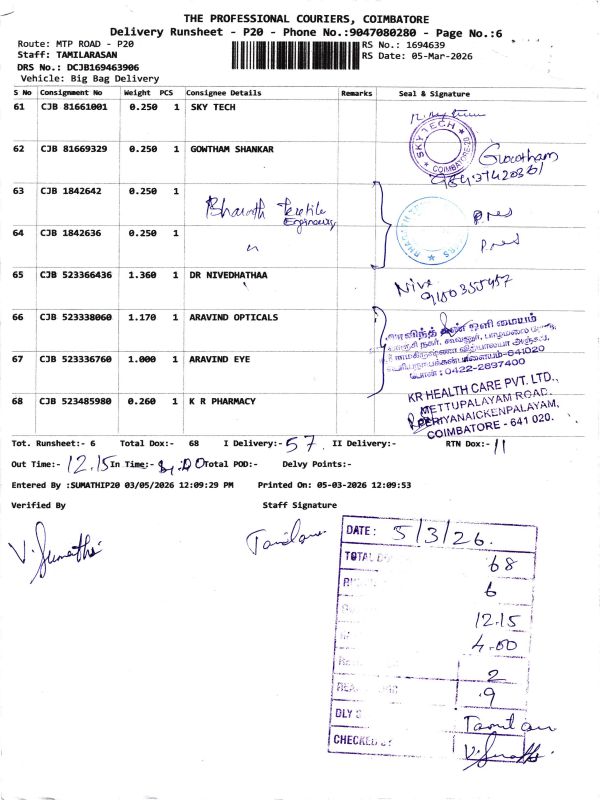 THE PROFESSIONAL COURIERS, COIMBATORE
Delivery Runsheet - P20 - Phone No.:9047080280 - Page No.:6
Route: MTP ROAD - P20
RS No.: 1694639
Staff: TAMILARASAN
RS Date: 05-Mar-2026
DRS No.: DCJB169463906
Vehicle: Big Bag Delivery
S No Consignment No Weight PCS Consignee Details Remarks Seal & Signature
61 CJB 81661001 0.250 1 SKY TECH
SKY TECH
COIMBATORE-20
62 CJB 81669329 0.250 1 GOWTHAM SHANKAR
Gowtham
63 CJB 1842642 0.250 1
Bharath Textile
Engineers
64 CJB 1842636 0.250 1
65 CJB 523366436 1.360 1 DR NIVEDHATHAA
Nive
9180355457
66 CJB 523338060 1.170 1 ARAVIND OPTICALS
67 CJB 523336760 1.000 1 ARAVIND EYE
போன் : 0422-2697400
68 CJB 523485980 0.260 1 K R PHARMACY
KR HEALTH CARE PVT. LTD.,
METTUPALAYAM ROAD,
PERIYANAICKENPALAYAM,
COIMBATORE - 641 020.
Tot. Runsheet:- 6 Total Dox:- 68 I Delivery:- 57. II Delivery:- RTN Dox:- 11
Out Time:- 12.15 In Time:- Total POD:- Delvy Points:-
Entered By :SUMATHIP20 03/05/2026 12:09:29 PM Printed On: 05-03-2026 12:09:53
Verified By Staff Signature
V. Sumathi
DATE: 5/3/26.
TOTAL 68
6
12.15
4.00
2
9
DLY
CHECKED BY V. Sumathi